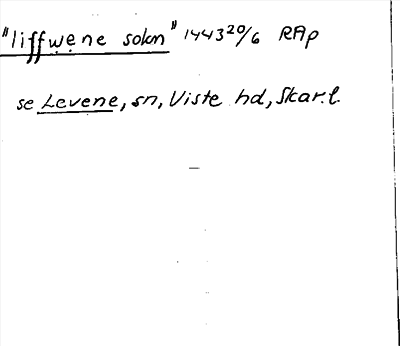 "liffwene sokn" 1443 20/6 RAp
se Levene, sn, Viste hd, Skar.l.